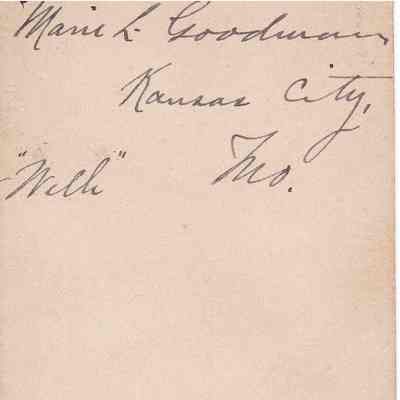 Marie L. Goodman
Kansas City,
Mo.
"Will"